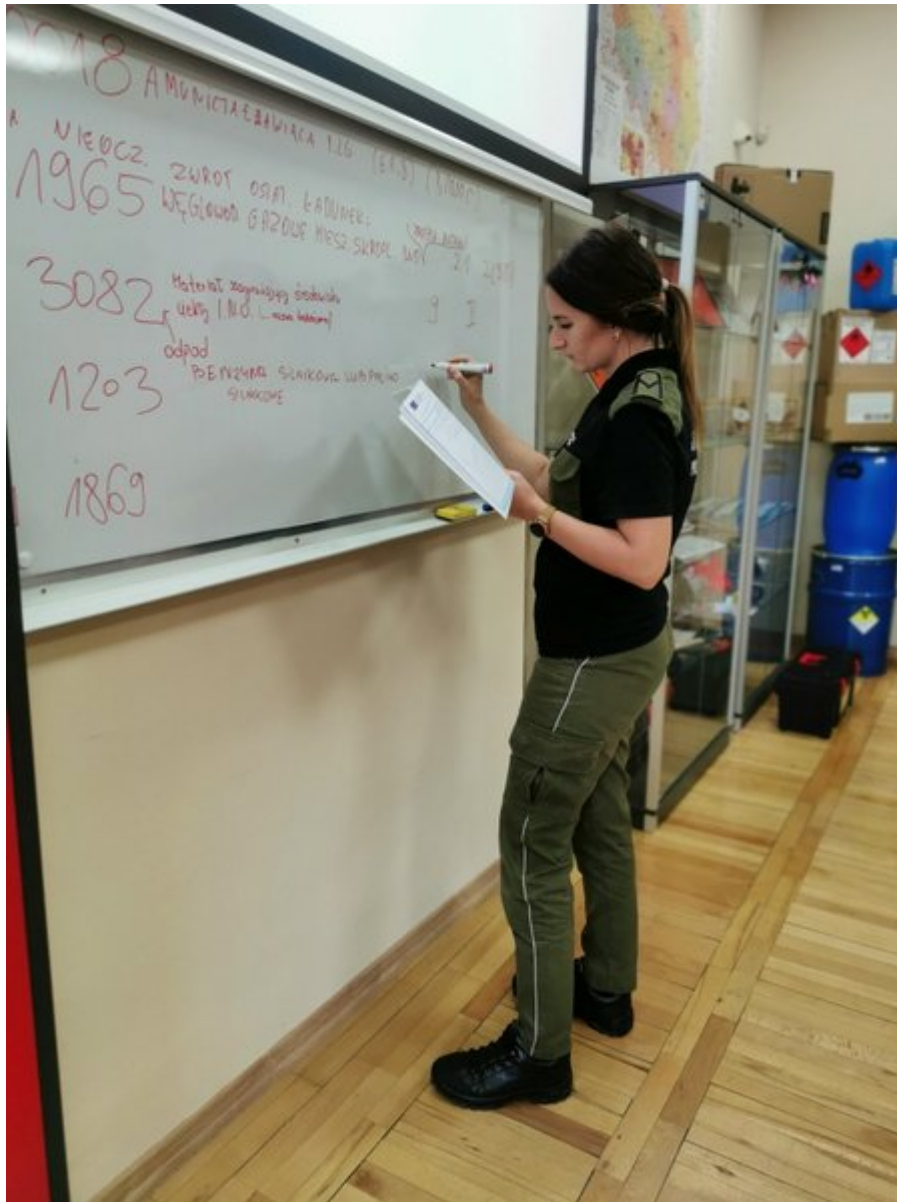 0018 AMUNICJA ŁZAWIĄCA 1.2G (6.1, 8)
NIEOCZ. ZWROT OSTAT. ŁADUNEK:
1965 WĘGLOWOD GAZOWE MIESZ SKROPL 2.1
3082 Materiał zagrażający środowisku
ciekły I.N.O. 9
odpad
1203 BENZYNA SILNIKOWA LUB PALIWO
SILNIKOWE
1869